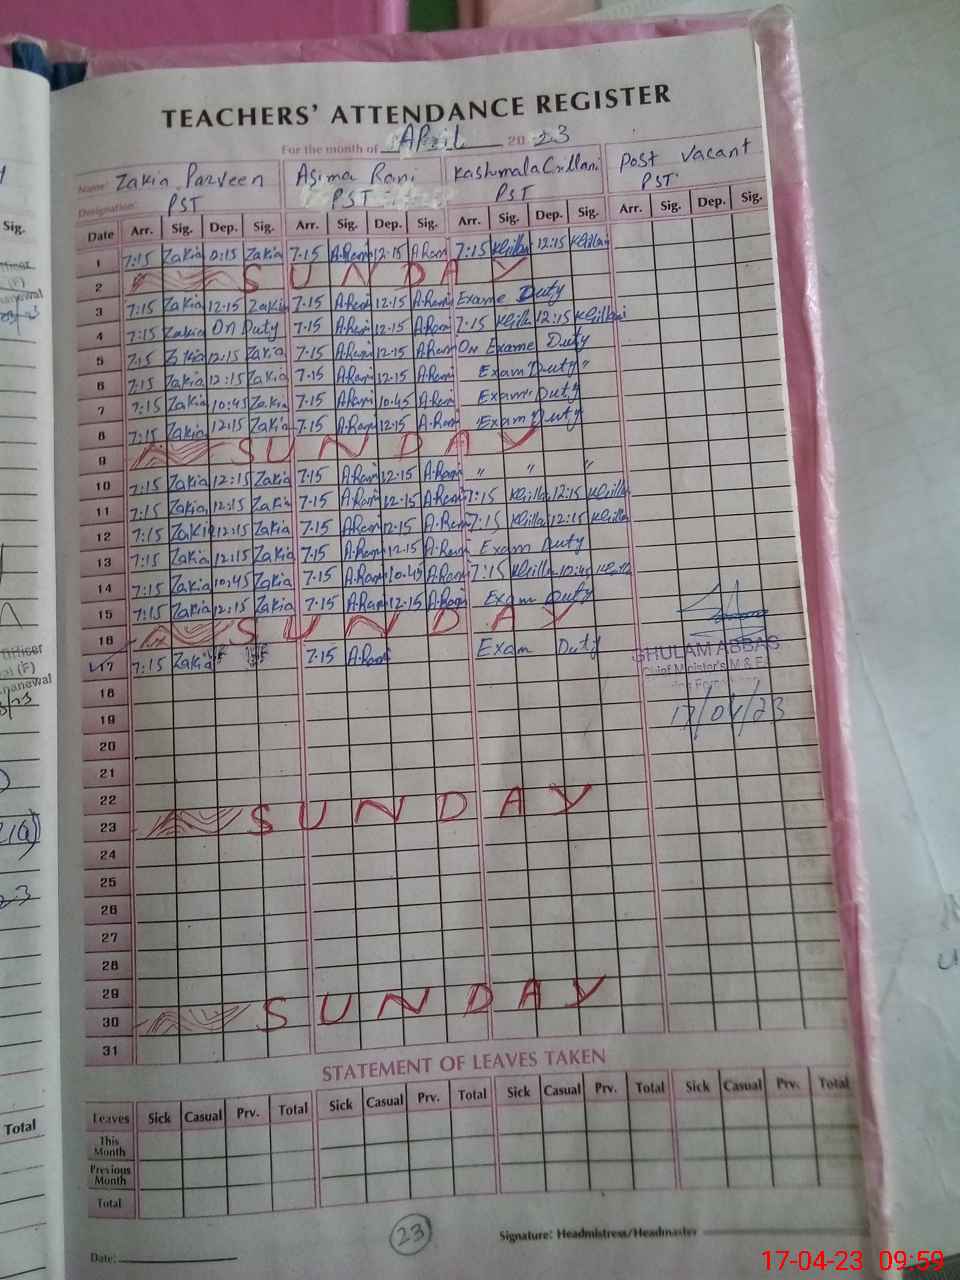 TEACHERS' ATTENDANCE REGISTER
For the month of April 2023
Name: Zakia Parveen Asima Rani Kashmala Post Vacant
Designation: PST PST PST PST
Date Arr. Sig. Dep. Sig. Arr. Sig. Dep. Sig. Arr. Sig. Dep. Sig. Arr. Sig. Dep. Sig.
1 7:15 Zakia Zakia 7-15 A.Rani 12-15 A.Rani 7:15 12:15
2 SUNDAY
3 7:15 Zakia 12-15 Zakia 7-15 A.Rani 12-15 A.Rani Exame Duty
4 7:15 Zakia On Duty 7-15 A.Rani 12-15 A.Rani 7:15 12:15
5 7:15 Zakia 12:15 Zakia 7-15 A.Rani 12-15 A.Rani On Exame Duty
6 7:15 Zakia 12:15 Zakia 7-15 A.Rani 12-15 A.Rani Exam Duty "
7 7:15 Zakia 10:45 Zakia 7-15 A.Rani 10.45 A.Rani Exam Duty
8 7:15 Zakia 12:15 Zakia 7-15 A.Rani 12-15 A.Rani Exam Duty
9 SUNDAY
10 7:15 Zakia 12:15 Zakia 7-15 A.Rani 12-15 A.Rani " " "
11 7:15 Zakia 12:15 Zakia 7-15 A.Rani 12-15 A.Rani 7:15 12:15
12 7:15 Zakia 12:15 Zakia 7-15 A.Rani 12-15 A.Rani 7:15 12:15
13 7:15 Zakia 12:15 Zakia 7-15 A.Rani 12-15 A.Rani Exam Duty
14 7:15 Zakia 10:45 Zakia 7-15 A.Rani 10-45 A.Rani 7:15 10:45
15 7:15 Zakia 12:15 Zakia 7-15 A.Rani 12-15 A.Rani Exam Duty
16 SUNDAY
17 7:15 Zakia 7-15 A.Rani Exam Duty
GHULAM ABBAS
Chief Minister's M & E
17/04/23
18
19
20
21
22
23 SUNDAY
24
25
26
27
28
29
30 SUNDAY
31
STATEMENT OF LEAVES TAKEN
Leaves Sick Casual Prv. Total Sick Casual Prv. Total Sick Casual Prv. Total Sick Casual Prv. Total
This Month
Previous Month
Total
23
Signature: Headmistress/Headmaster
Date:
Sig.
Total
17-04-23 09:59